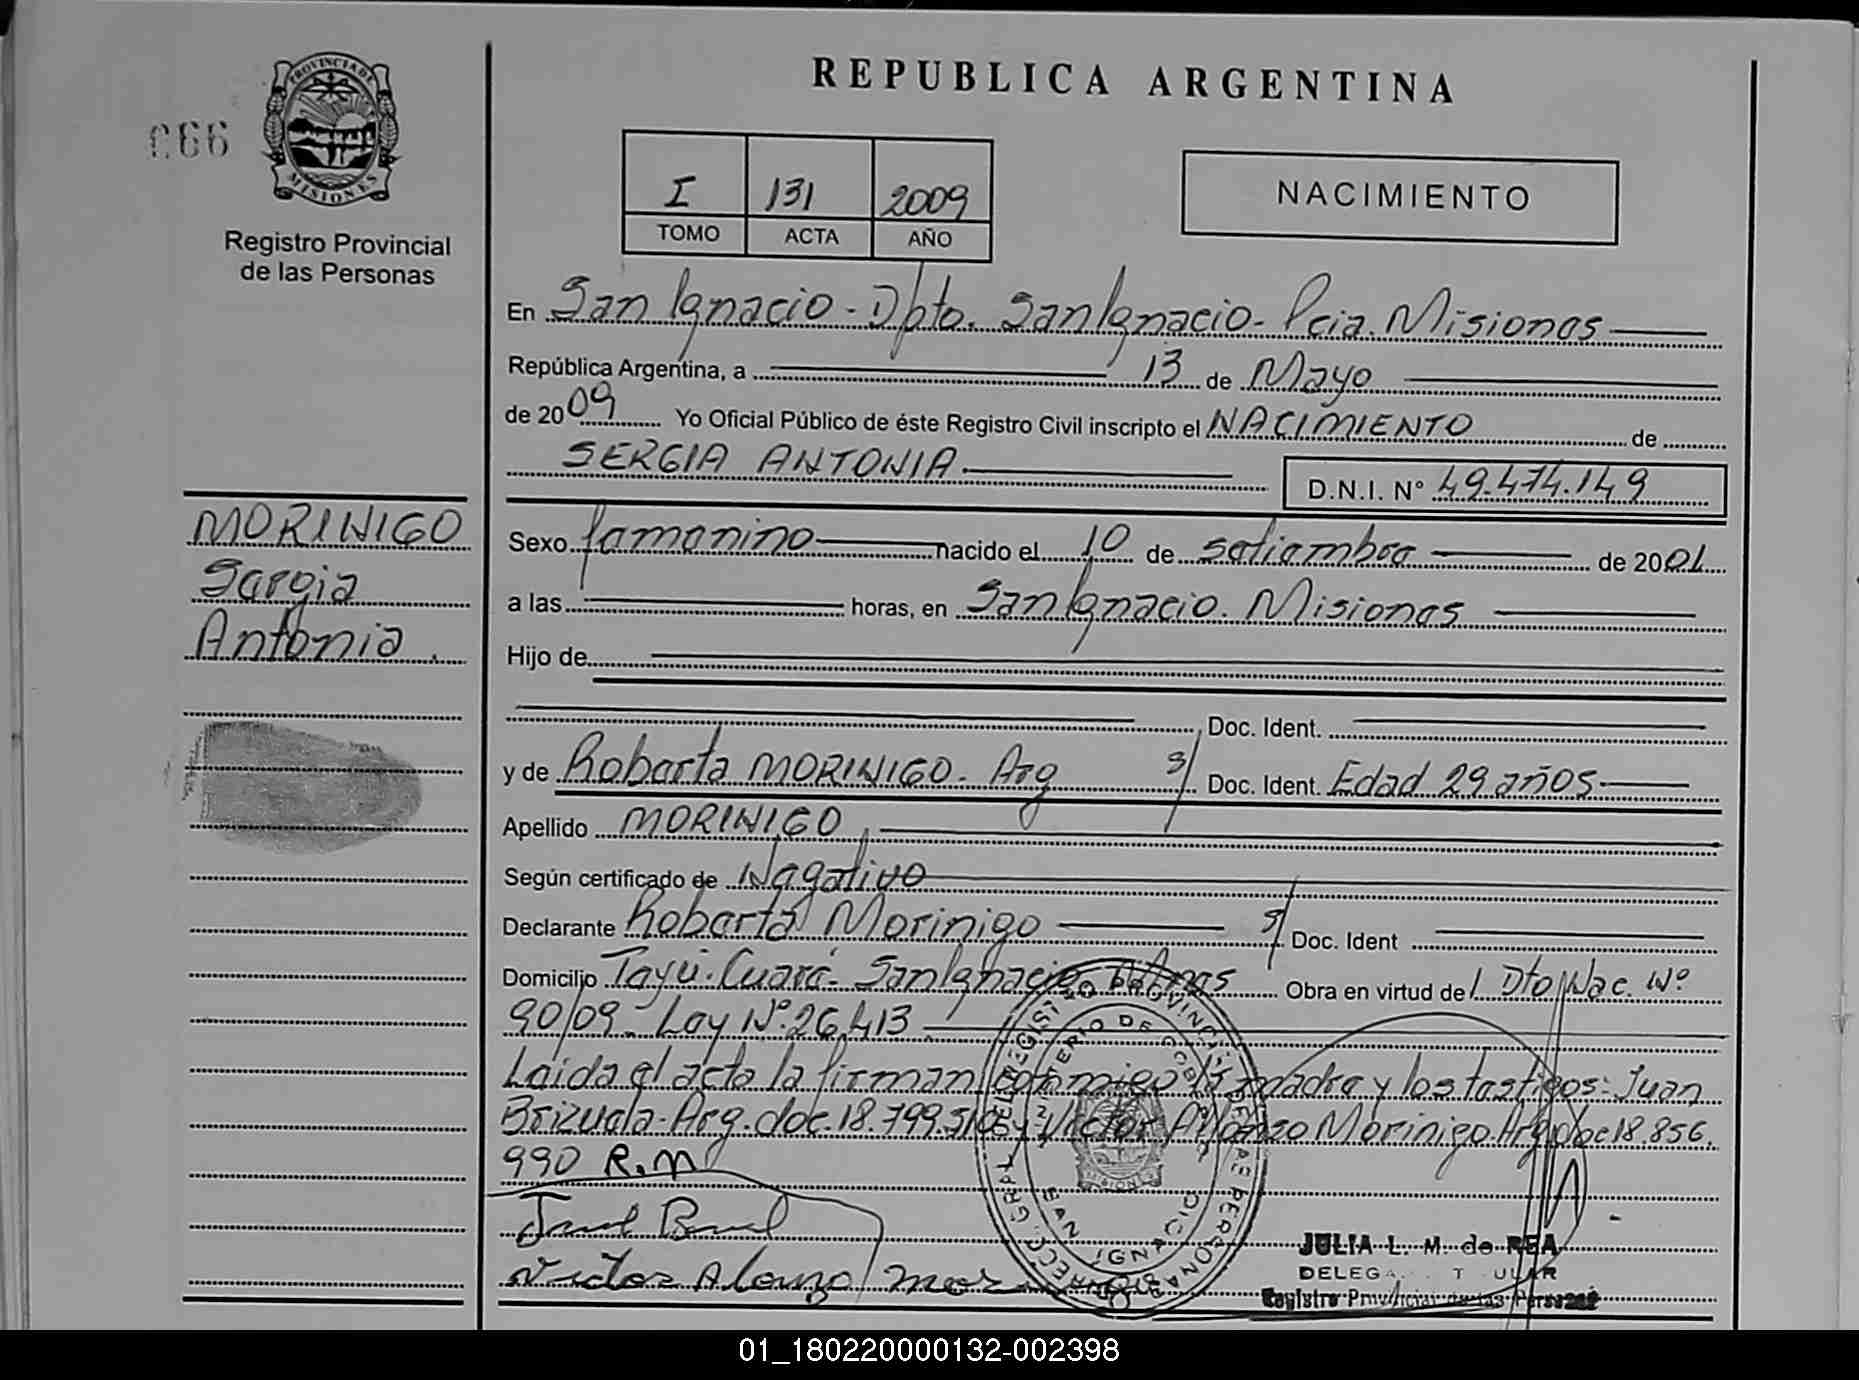 REPUBLICA ARGENTINA
066
PROVINCIA DE
MISIONES
Registro Provincial
de las Personas
I 131 2009
TOMO ACTA AÑO
NACIMIENTO
En San Ignacio - Dpto. San Ignacio - Pcia. Misiones
República Argentina, a 13 de Mayo
de 2009 Yo Oficial Público de éste Registro Civil inscripto el NACIMIENTO de
SERGIA ANTONIA
D.N.I. N° 49.474.149
MORINIGO
Sergia
Antonia.
Sexo femenino nacido el 10 de setiembre de 2001
a las horas, en San Ignacio. Misiones
Hijo de
Doc. Ident.
y de Roberta MORINIGO. Arg s/ Doc. Ident. Edad 29 años
Apellido MORINIGO
Según certificado de Negativo
Declarante Roberta Morinigo s/ Doc. Ident
Domicilio Tayú-Cuaré- San Ignacio Mnes Obra en virtud del Dto Nac. Nº
90/09 - Ley Nº 26.413
Leida el acta la firman conmigo la madre y los testigos: Juan
Brizuela - Arg. doc. 18.799.510 y Victor Alfonso Morinigo. Arg. doc 18.856.
990 R.M
Victor Alonzo Mor
SAN IGNACIO
JULIA L. M. de REA
Registro Provincial de las Personas
01_180220000132-002398